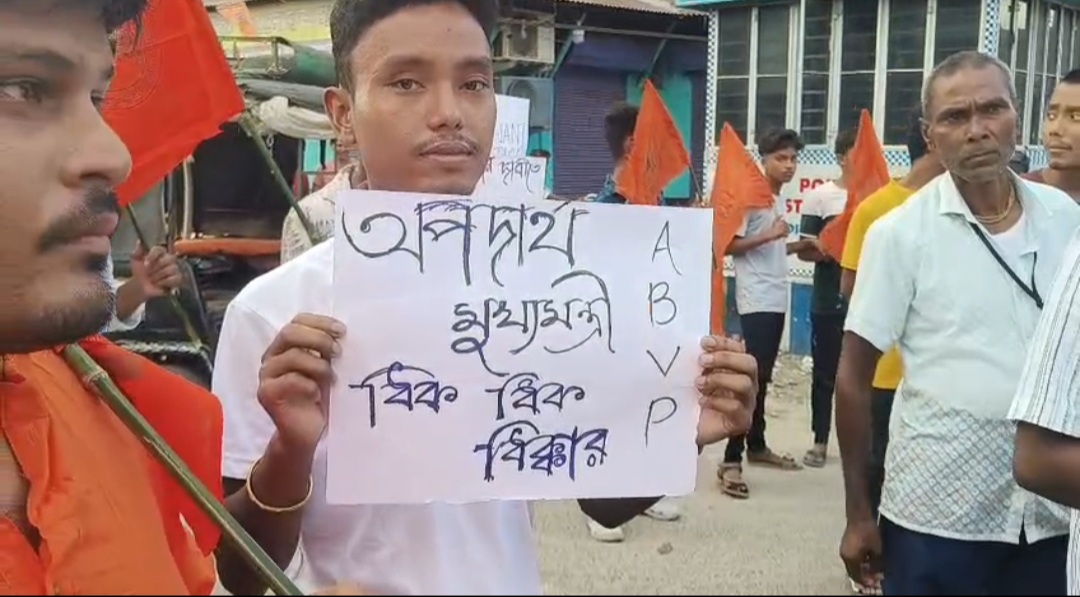 অপদার্থ
মুখ্যমন্ত্রী
ধিক ধিক
ধিক্কার
A
B
V
P
দাবীতে
PO
ST